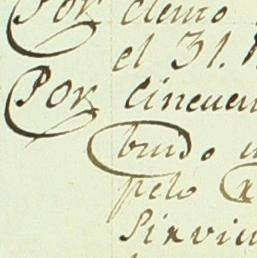 Por ciento
el 31.
Por cincuen
buido
pelo
Sirvien